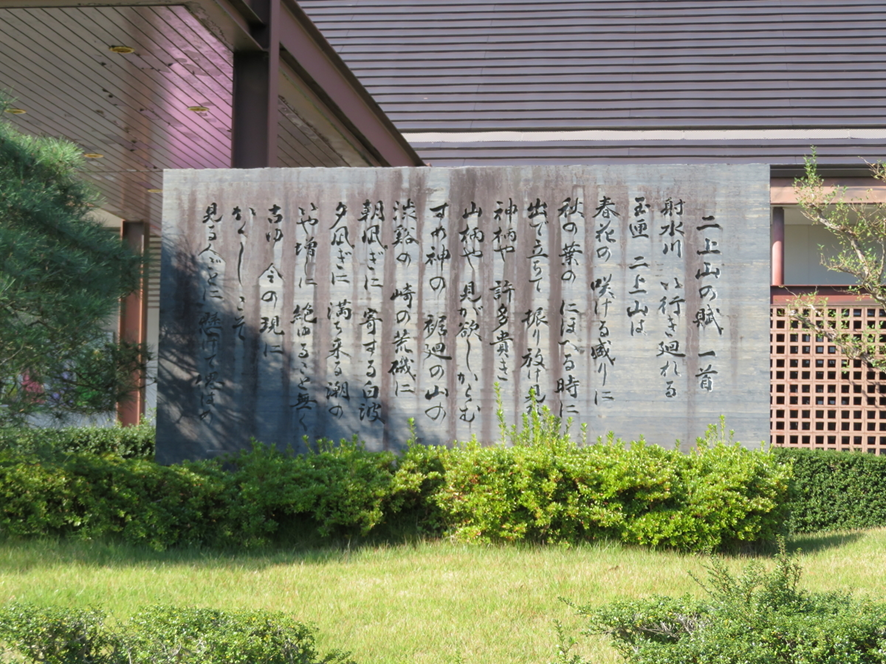 二上山の賦 一首
射水川 い行き廻れる
玉匣 二上山は
春花の 咲ける盛りに
秋の葉の にほへる時に
出で立ちて 振り放け見
神柄や 許多貴き
山柄や 見が欲しからむ
すめ神の 裾廻の山の
渋谿の 崎の荒磯に
朝凪ぎに 寄する白波
夕凪ぎに 満ち来る潮の
いや増しに 絶ゆること無く
古ゆ 今の現に
かくしこそ
見る人ごとに 懸けて偲はめ